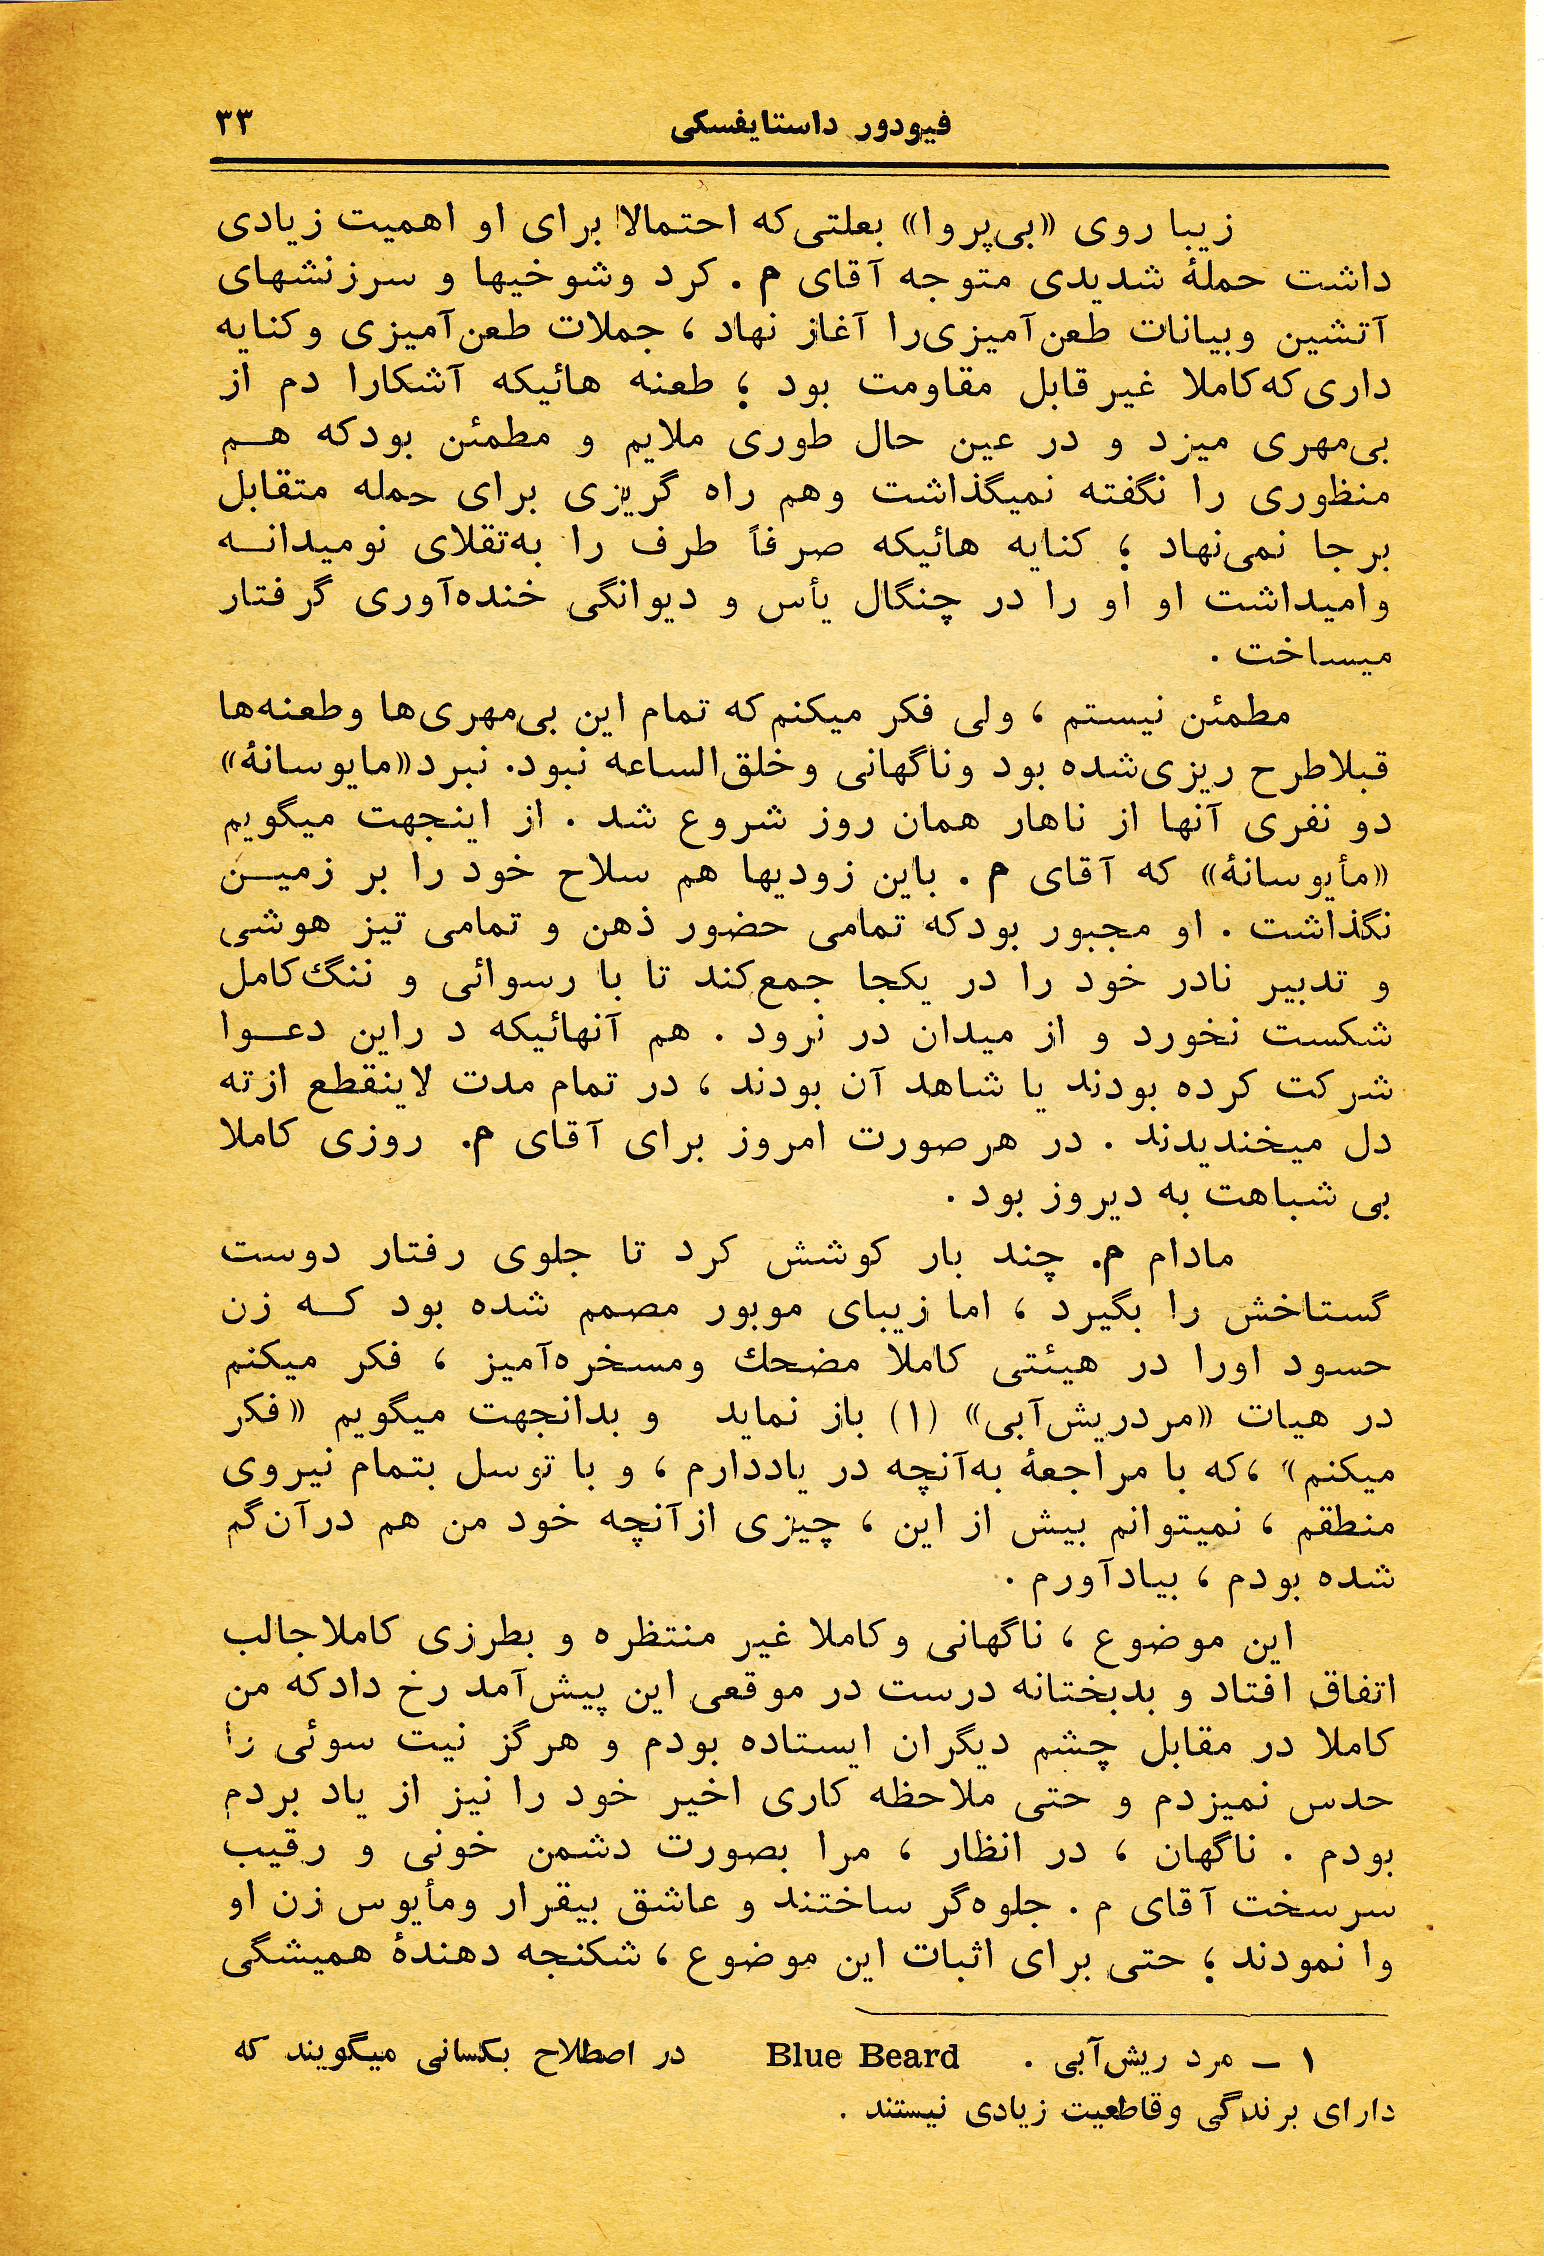 فیودور داستایفسکی ۳۳
زیبا روی «بی‌پروا» بعلتی‌که احتمالا برای او اهمیت زیادی
داشت حملهٔ شدیدی متوجه آقای م . کرد وشوخیها و سرزنشهای
آتشین وبیانات طعن‌آمیزی‌را آغاز نهاد ، جملات طعن‌آمیزی وکنایه
داری‌که‌کاملا غیرقابل مقاومت بود ؛ طعنه هائیکه آشکارا دم از
بی‌مهری میزد و در عین حال طوری ملایم و مطمئن بودکه هم
منظوری را نگفته نمیگذاشت وهم راه گریزی برای حمله متقابل
برجا نمی‌نهاد ؛ کنایه هائیکه صرفاً طرف را به‌تقلای نومیدانه
وامیداشت او او را در چنگال یأس و دیوانگی خنده‌آوری گرفتار
میساخت .
مطمئن نیستم ، ولی فکر میکنم‌که تمام این بی‌مهری‌ها وطعنه‌ها
قبلاطرح ریزی‌شده بود وناگهانی وخلق‌الساعه نبود. نبرد«مایوسانهٔ»
دو نفری آنها از ناهار همان روز شروع شد . از اینجهت میگویم
«مأیوسانهٔ» که آقای م . باین زودیها هم سلاح خود را بر زمین
نگذاشت . او مجبور بودکه تمامی حضور ذهن و تمامی تیز هوشی
و تدبیر نادر خود را در یکجا جمع‌کند تا با رسوائی و ننگ‌کامل
شکست نخورد و از میدان در نرود . هم آنهائیکه د راین دعوا
شرکت کرده بودند یا شاهد آن بودند ، در تمام مدت لاینقطع ازته
دل میخندیدند . در هرصورت امروز برای آقای م. روزی کاملا
بی شباهت به دیروز بود .
مادام م. چند بار کوشش کرد تا جلوی رفتار دوست
گستاخش را بگیرد ، اما زیبای موبور مصمم شده بود که زن
حسود اورا در هیئتی کاملا مضحك ومسخره‌آمیز ، فکر میکنم
در هیات «مردریش‌آبی» (۱) باز نماید و بدانجهت میگویم «فکر
میکنم» ،که با مراجعهٔ به‌آنچه در یاددارم ، و با توسل بتمام نیروی
منطقم ، نمیتوانم بیش از این ، چیزی ازآنچه خود من هم درآن‌گم
شده بودم ، بیادآورم .
این موضوع ، ناگهانی وکاملا غیر منتظره و بطرزی کاملاجالب
اتفاق افتاد و بدبختانه درست در موقعی این پیش‌آمد رخ دادکه من
کاملا در مقابل چشم دیگران ایستاده بودم و هرگز نیت سوئی را
حدس نمیزدم و حتی ملاحظه کاری اخیر خود را نیز از یاد بردم
بودم . ناگهان ، در انظار ، مرا بصورت دشمن خونی و رقیب
سرسخت آقای م . جلوه‌گر ساختند و عاشق بیقرار ومأیوس زن او
وا نمودند ؛ حتی برای اثبات این موضوع ، شکنجه دهندهٔ همیشگی
۱ – مرد ریش‌آبی . Blue Beard در اصطلاح بکسانی میگویند که
دارای برندگی وقاطعیت زیادی نیستند .